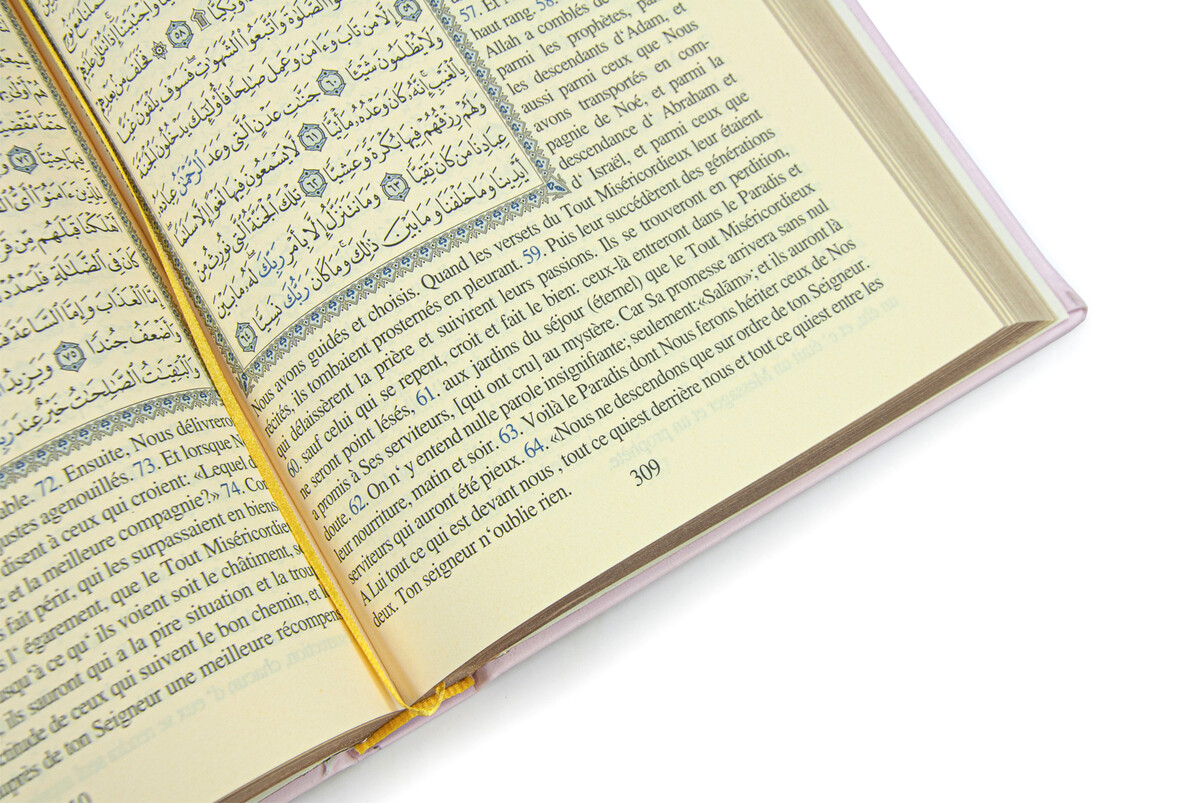 وَبُكِيًّا ۩ ٥٨ ۞ فَخَلَفَ مِنۢ
أَضَاعُوا۟ ٱلصَّلَوٰةَ وَٱتَّبَعُوا۟ ٱلشَّهَوَٰتِ فَسَوْفَ يَلْقَوْنَ غَيًّا ٥٩
إِلَّا مَن تَابَ وَءَامَنَ وَعَمِلَ صَٰلِحًا فَأُو۟لَٰٓئِكَ يَدْخُلُونَ ٱلْجَنَّةَ
وَلَا يُظْلَمُونَ شَيْـًٔا ٦٠ جَنَّٰتِ عَدْنٍ ٱلَّتِى وَعَدَ ٱلرَّحْمَٰنُ عِبَادَهُۥ
بِٱلْغَيْبِ إِنَّهُۥ كَانَ وَعْدُهُۥ مَأْتِيًّا ٦١ لَّا يَسْمَعُونَ فِيهَا لَغْوًا إِلَّا سَلَٰمًا
وَلَهُمْ رِزْقُهُمْ فِيهَا بُكْرَةً وَعَشِيًّا ٦٢ تِلْكَ ٱلْجَنَّةُ ٱلَّتِى نُورِثُ مِنْ
عِبَادِنَا مَن كَانَ تَقِيًّا ٦٣ وَمَا نَتَنَزَّلُ إِلَّا بِأَمْرِ رَبِّكَ لَهُۥ مَا بَيْنَ
أَيْدِينَا وَمَا خَلْفَنَا وَمَا بَيْنَ ذَٰلِكَ وَمَا كَانَ رَبُّكَ نَسِيًّا ٦٤
57. Et
haut rang. 58.
Allah a comblés de
parmi les prophètes, parmi
les descendants d‘Adam, et
aussi parmi ceux que Nous
avons transportés en com-
pagnie de Noé, et parmi la
descendance d‘ Abraham et
d‘ Israël, et parmi ceux que
Nous avons guidés et choisis. Quand les versets du Tout Miséricordieux leur étaient
récités, ils tombaient prosternés en pleurant. 59. Puis leur succédèrent des générations
qui délaissèrent la prière et suivirent leurs passions. Ils se trouveront en perdition,
60. sauf celui qui se repent, croit et fait le bien: ceux-là entreront dans le Paradis et
ne seront point lésés, 61. aux jardins du séjour (éternel) que le Tout Miséricordieux
a promis à Ses serviteurs, [qui ont cru] au mystère. Car Sa promesse arrivera sans nul
doute. 62. On n‘ y entend nulle parole insignifiante; seulement: «Salâm»; et ils auront là
leur nourriture, matin et soir. 63. Voilà le Paradis dont Nous ferons hériter ceux de Nos
serviteurs qui auront été pieux. 64. «Nous ne descendons que sur ordre de ton Seigneur.
A Lui tout ce qui est devant nous , tout ce quiest derrière nous et tout ce quiest entre les
deux. Ton seigneur n‘oublie rien.
309
٧٣
ٱلَّذِينَ ءَامَنُوٓا۟ أَىُّ
أَهْلَكْنَا قَبْلَهُم مِّن
كَانَ فِى ٱلضَّلَٰلَةِ فَلْيَمْدُدْ
إِمَّا ٱلْعَذَابَ وَإِمَّا ٱلسَّاعَةَ
وَأَضْعَفُ جُندًا ٧٥ وَيَزِيدُ
وَٱلْبَٰقِيَٰتُ ٱلصَّٰلِحَٰتُ خَيْرٌ عِندَ
72. Ensuite, Nous délivrerons
agenouillés. 73. Et lorsque
disent à ceux qui croient: «Lequel
et la meilleure compagnie?» 74.
fait périr, qui les surpassaient en biens
l‘ égarement, que le Tout Miséricordieux
jusqu‘à ce qu‘ ils voient soit le châtiment,
ils sauront qui a la pire situation et la
de ceux qui suivent le bon chemin, et
auprès de ton Seigneur une meilleure